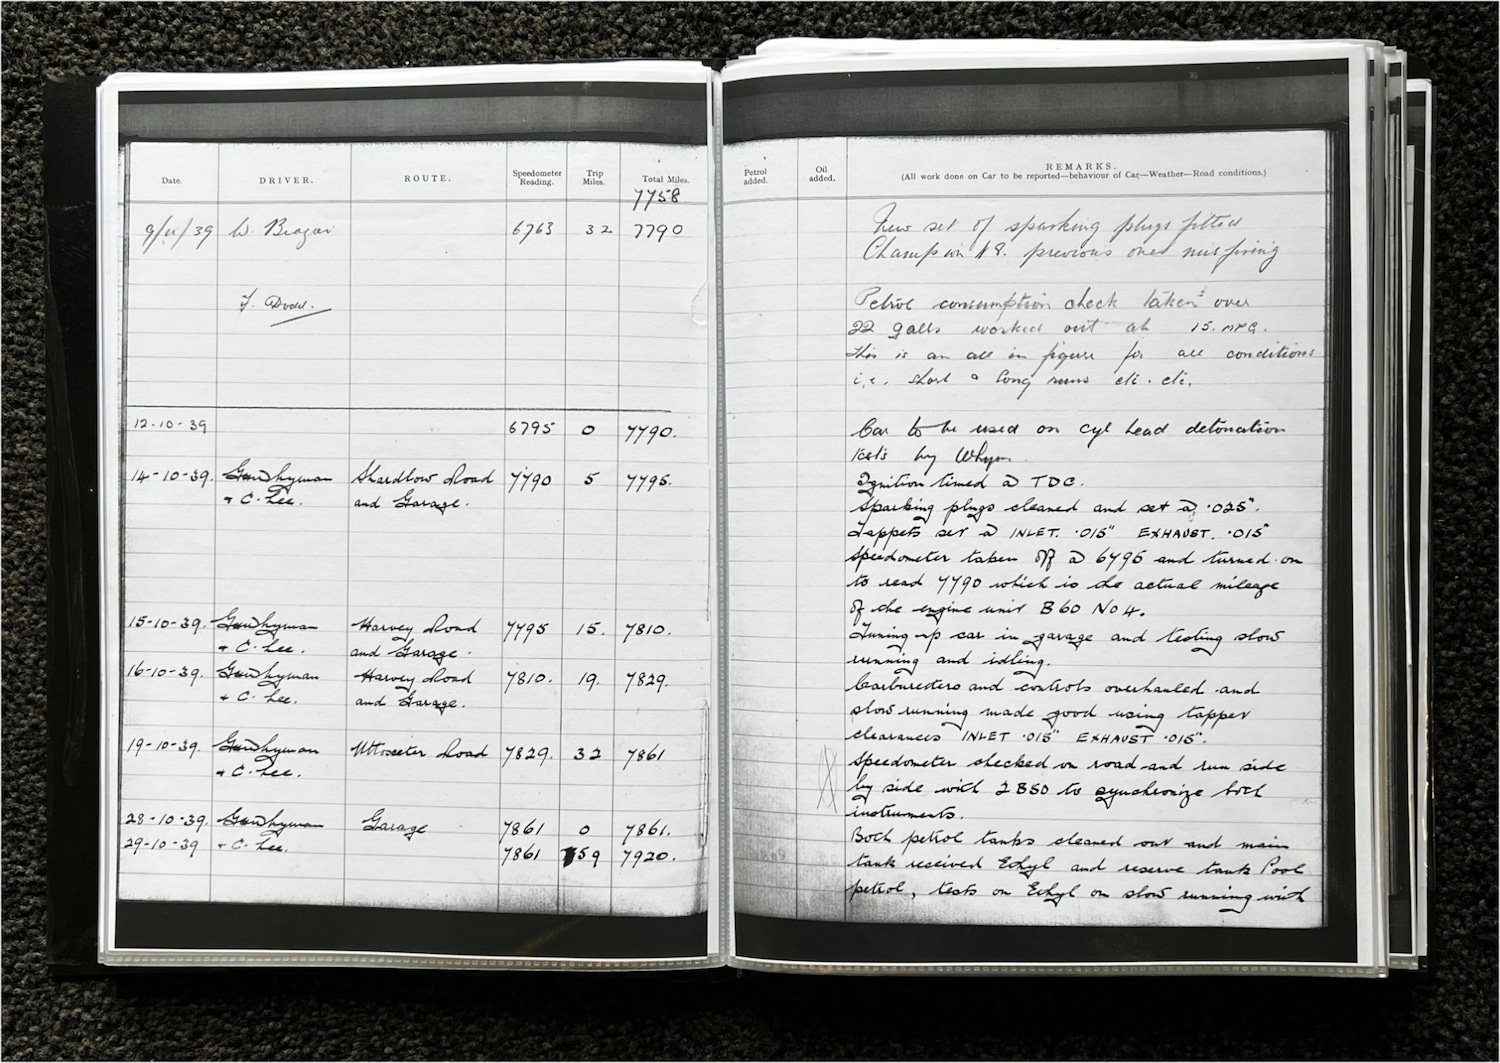 Date. DRIVER. ROUTE. Speedometer Reading. Trip Miles. Total Miles. Petrol added. Oil added. REMARKS.
(All work done on Car to be reported—behaviour of Car,—Weather—Road conditions.)
7758
39 W. 6763 32 7790 New set of sparking plugs fitted
Champion previous ones misfiring
Petrol consumption check taken over
22 galls worked out at 15. MPG.
This is an all in figure for all conditions
i.e. short & long runs etc. etc.
12-10-39 6795 0 7790. Car to be used on cyl head detonation
tests by Whyman
14-10-39. Shardlow Road 7790 5 7795. Ignition timed @ TDC.
+ C. Lee. and Garage. Sparking plugs cleaned and set @ .025".
Tappets set @ INLET. .015" EXHAUST. .015"
Speedometer taken off @ 6795 and turned on
to read 7790 which is the actual mileage
of the engine unit B60 No 4.
15-10-39. Harvey Road 7795 15. 7810. Tuning up car in garage and testing slow
+ C. Lee. and Garage. running and idling.
16-10-39. Harvey Road 7810. 19. 7829. Carburetters and controls overhauled and
+ C. Lee. and Garage. slow running made good using tapper
clearances INLET .015" EXHAUST .015".
19-10-39. Uttoxeter Road 7829. 32 7861 Speedometer checked on road and run side
+ C. Lee. by side with 2B50 to synchronize both
instruments.
28-10-39. Garage 7861 0 7861. Both petrol tanks cleaned out and main
29-10-39 + C. Lee. 7861 59 7920. tank received Ethyl and reserve tank Pool
petrol, tests on Ethyl on slow running with